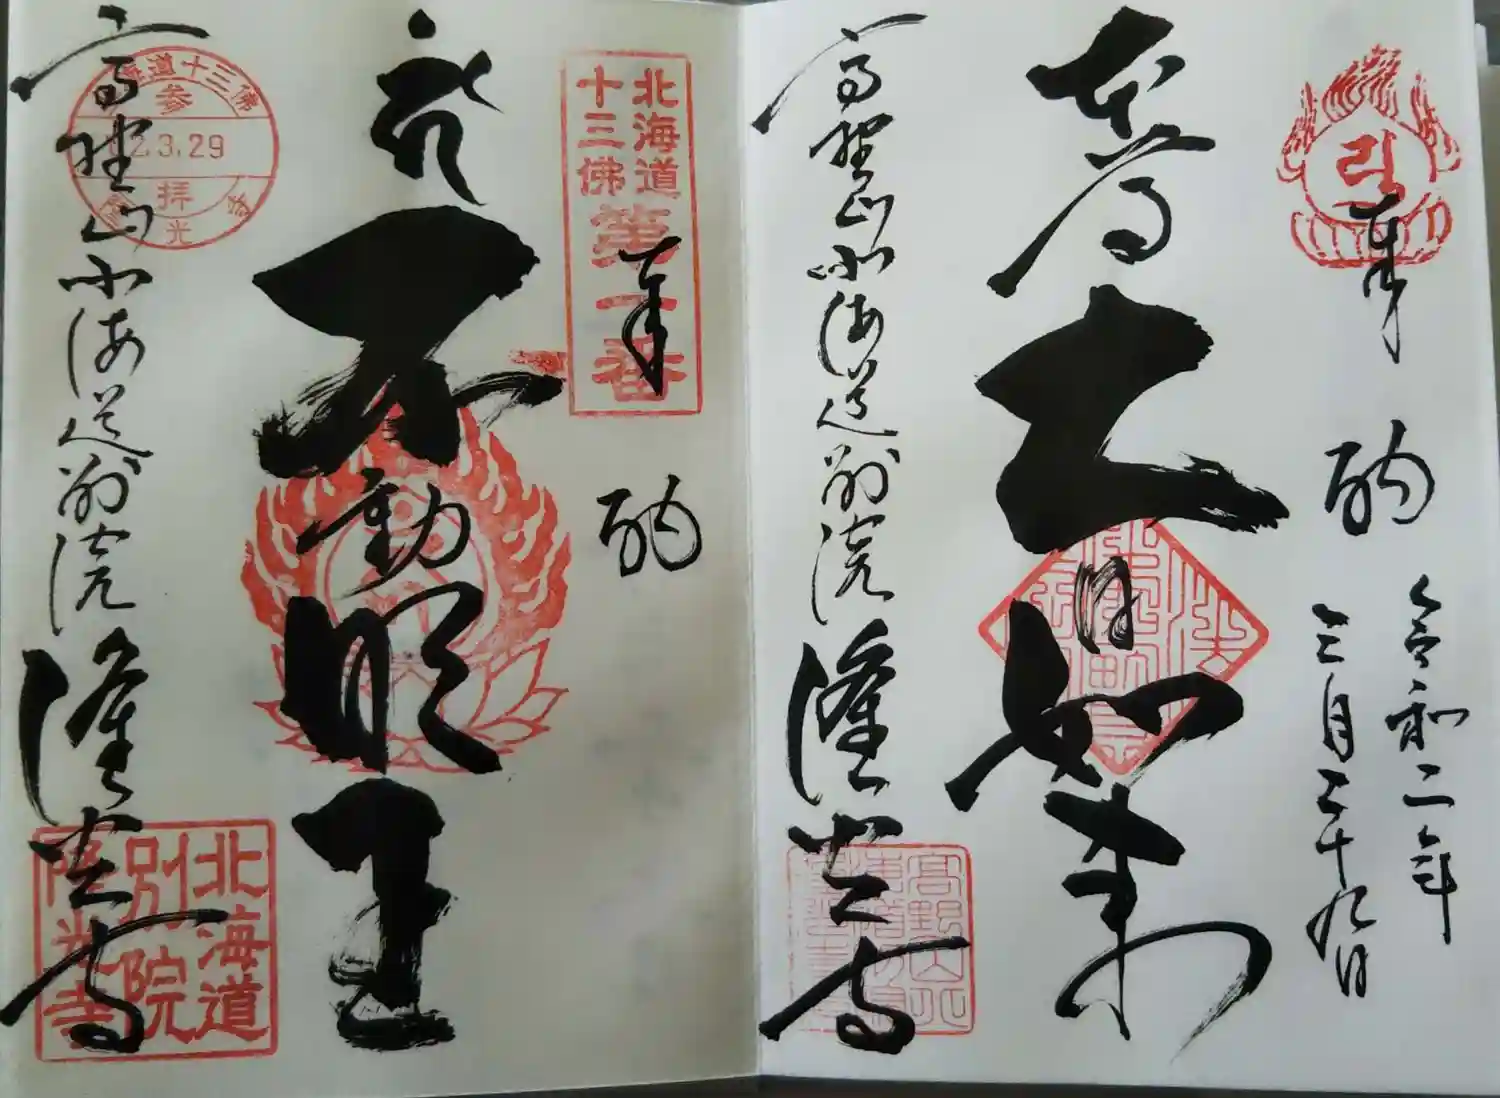 奉 納
令和二年
三月二十九日
本尊
大日如来
高野山北海道別院
隆光寺
奉 納
北海道
十三佛
第一番
不動明王
高野山北海道別院
隆光寺
北海道十三佛
参
02.3.29
拝
隆光寺
北海道
別院
隆光寺